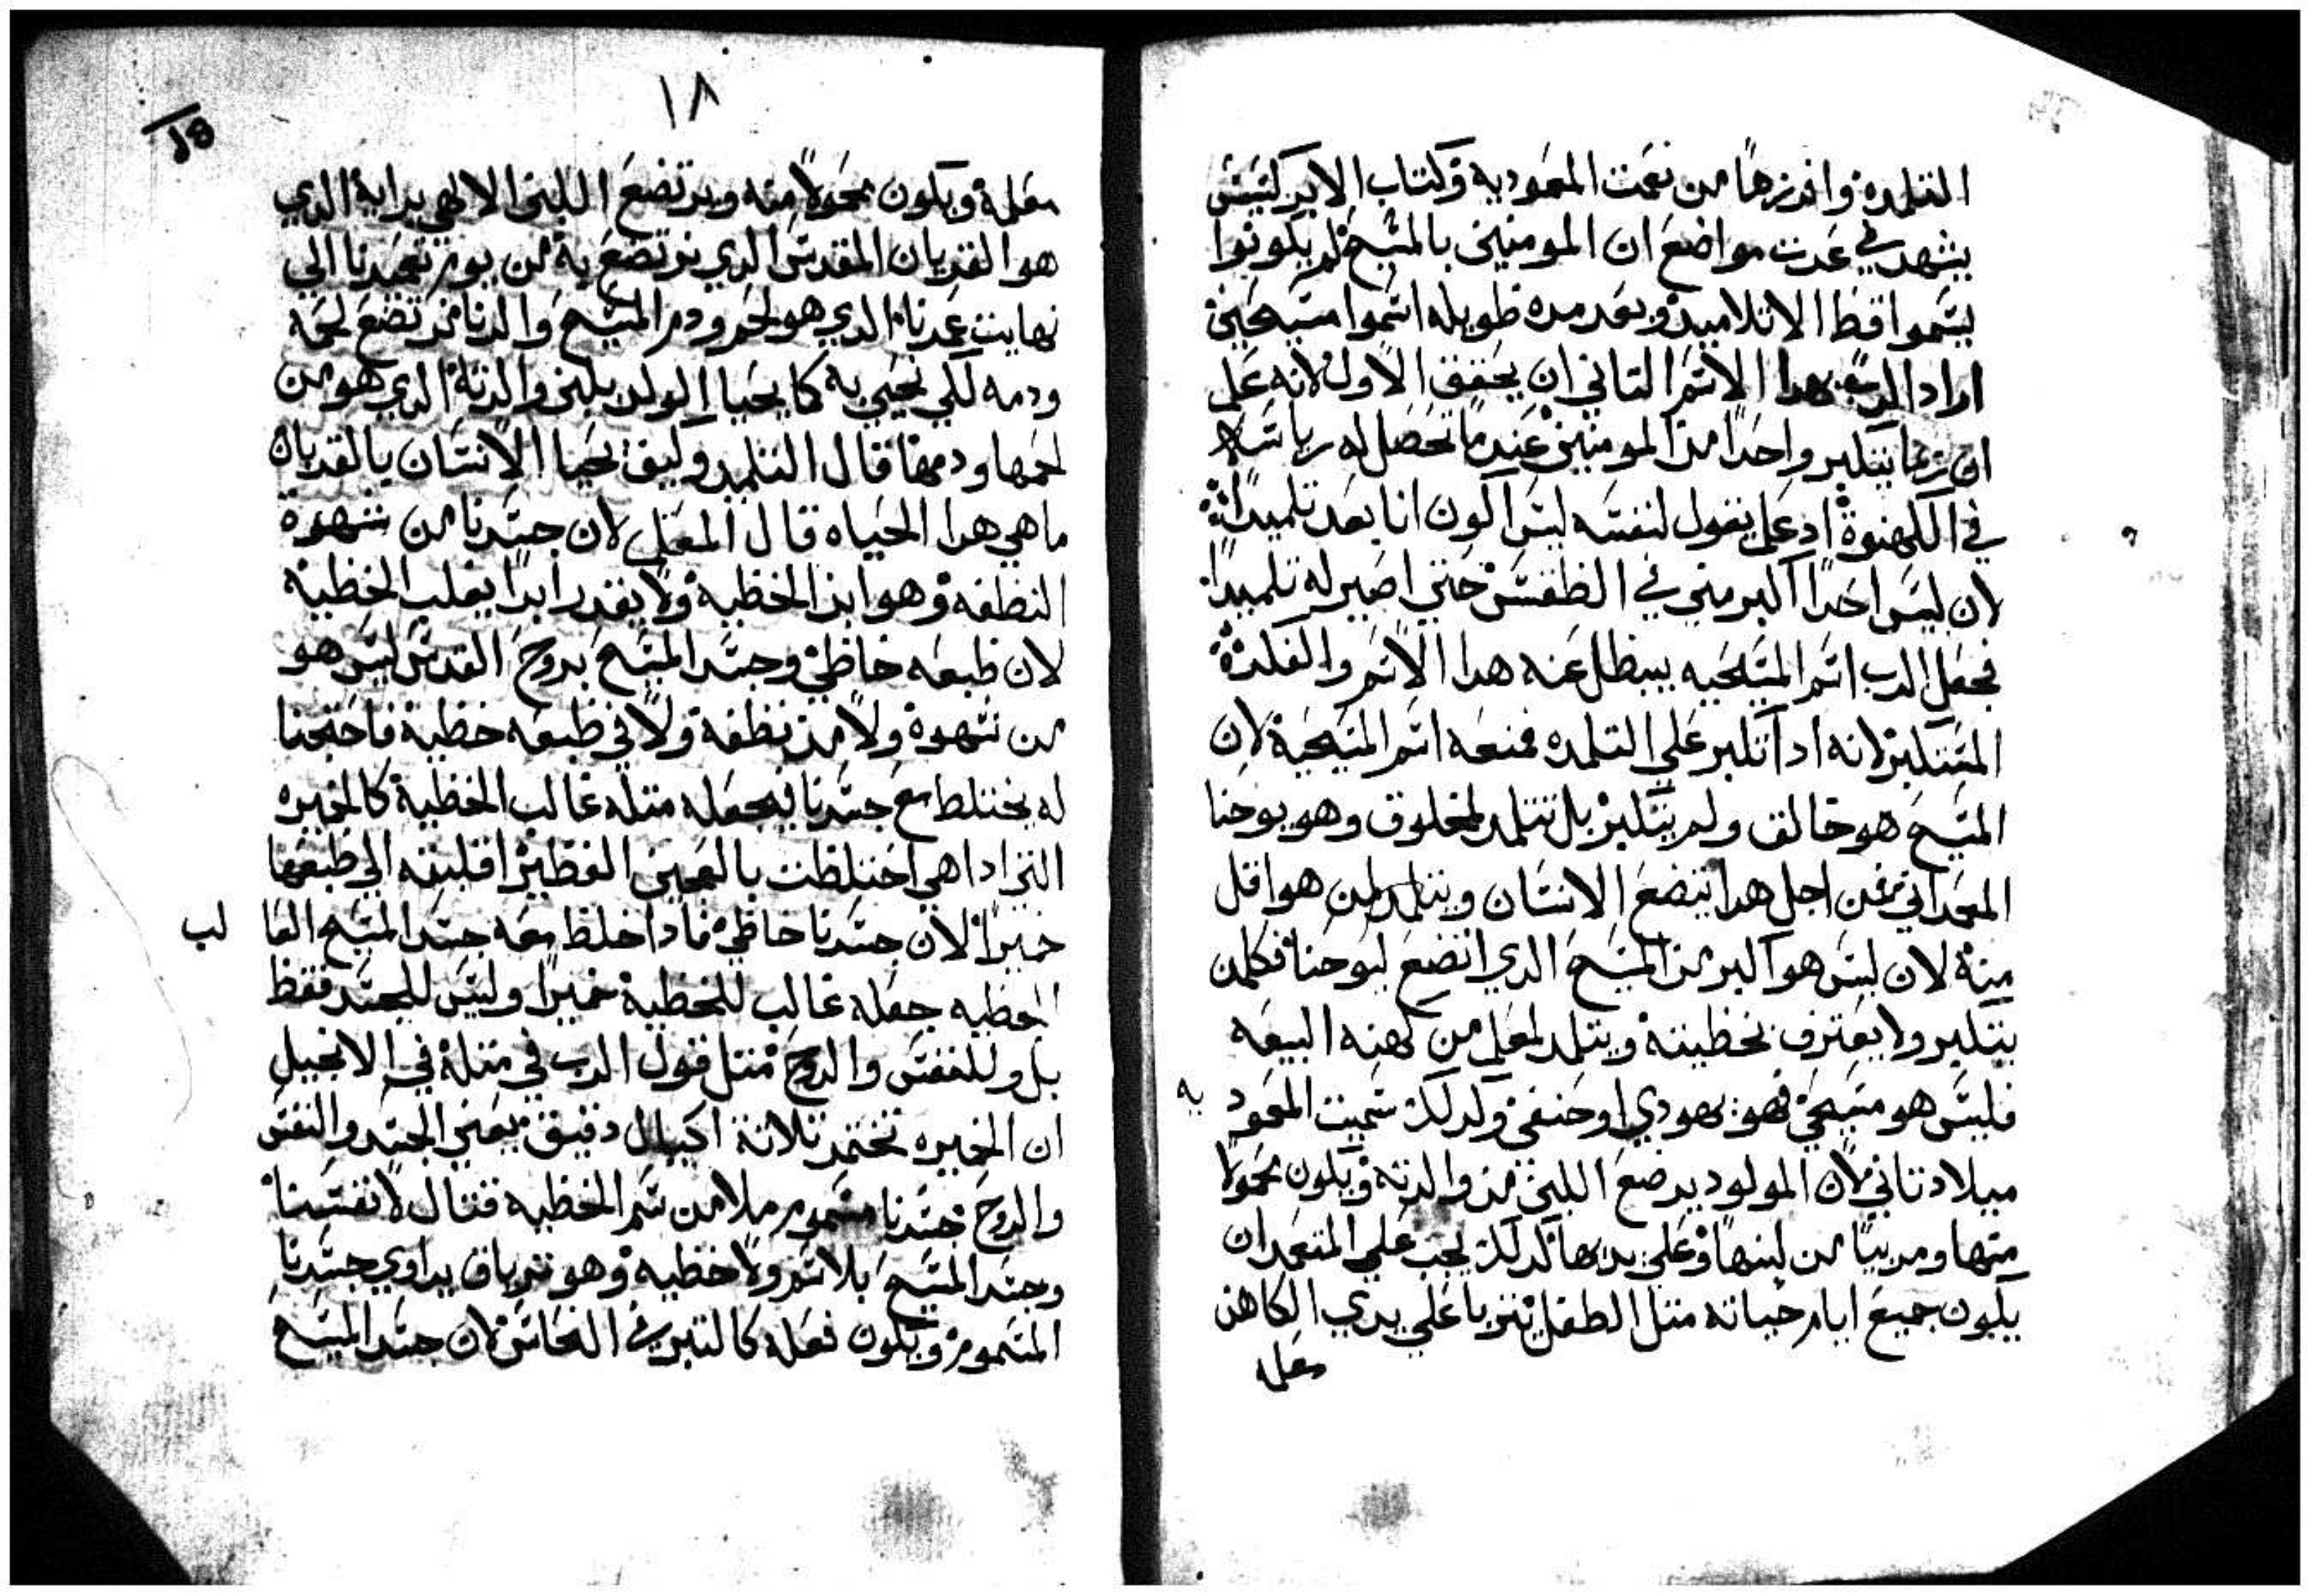 التلمده وافرزها من نعمت المعموديه وكتاب الابركسيس
يشهد في عدت مواضع ان المومنين بالمسيح لم يكونوا
يسموا قط الا تلاميد وبعد مده طويله اسموا مسيحين
اراد الرب بهدا الاسم التاني ان يحقق الاول لانه علم
ان ربما يتكبر واحدا من المومنين عندما تحصل له رياسه
في الكهنوة اد علم يقول لنفسه ليس اكون انا بعد تلميدا
لان ليس احدا اكبر مني في الطقس حتي اصير له تلميدا
فجعل الرب اسم المسيحيه يبطل عنه هدا الاسم والفكرة
المتكبر لانه ادا تكبر علي التلمده فمنعه اسم المسيحية لان
المسيح هو خالق ولم يتكبر بل تتلمد لمخلوق وهو يوحنا
المعمداني فمن اجل هدا يتضع الانسان ويتلمد لمن هو اقل
منه لان ليس هو اكبر من المسيح الدي اتضع ليوحنا فكلمن
يتكبر ولا يعترف بخطيته ويتلمد لمعلم من كهنه البيعه
فليس هو مسيحي فهو يهودي او حنفي ولدلك سميت المعمود يه
ميلاد تاني لان المولود يرضع اللبن من والدته ويكون محمولا
منها ومربيا من لبنها وعلي يديها كدلك يجب علي المتعمد ان
يكون جميع ايام حياته متل الطفل يتربا علي يدي الكاهن
معلمه
١٨
معلمة ويكون محمولا منه ويرتضع اللبن الالهي بداية الدي
هو القربان المقدس الدي نرتضع به من يوم تعمدنا الي
نهايت عمرنا الدي هو لحم ودم المسيح والدنا نرتضع لحمه
ودمه لكي نحيي به كما يحيا الولد بلبن والدتة الدي هو من
لحمها ودمها قال التلميد وكيف يحيا الانسان بالقربان
ما هي هدا الحياه قال المعلم لان جسدنا من شهوة
النطفه وهو ابن الخطية ولا يقدر ابدا يغلب الخطية
لان طبعه خاطي وجسد المسيح بروح القدس ليس هو
من شهوة ولا من نطفة ولا في طبعه خطية فاحتجنا
له يختلط مع جسدنا فيجعله متله غالب الخطية كالخميره
التي ادا هي اختلطت بالعجين الفطير اقلبته الي طبعها
خميرا لان جسدنا خاطي فادا خلط معه جسد المسيح الغا لب
الخطيه جعله غالب للخطية خميرا وليس للجسد فقط
بل وللنفس والروح متل قول الرب في متلة في الانجيل
ان الخميره تختمر تلاتة اكيال دقيق يعني الجسد والنفس
والروح جسدنا مسموم ملا من سم الخطيه قتال لانفسنا
وجسد المسيح بلا سم ولا خطيه وهو ترياق يداوي جسدنا
المسموم ويكون فعله كالتبر في النحاس لان جسد المسيح